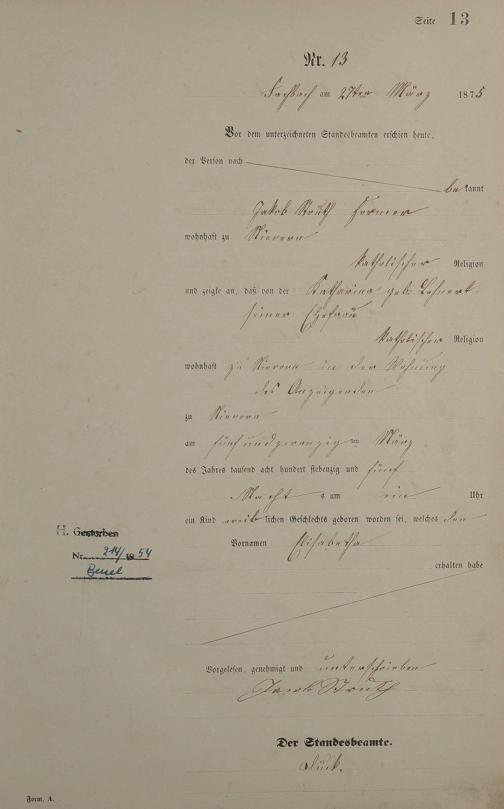 Seite 13
Nr. 13
Fachbach am 27ten März 1875
Vor dem unterzeichneten Standesbeamten erschien heute,
der Person nach
bekannt
Jakob Struth Former
wohnhaft zu Nievern
katholischer Religion
und zeigte an, daß von der Katharina geb. Lehnert
seiner Ehefrau
katholischer Religion
wohnhaft zu Nievern in der Wohnung
des Anzeigenden
zu Nievern
am fünfundzwanzigten März
des Jahres tausend acht hundert siebenzig und fünf
Nachts um ein Uhr
ein Kind weiblichen Geschlechts geboren worden sei, welches den
Vornamen Elisabetha
erhalten habe
H. Gestorben
Nr. 214/1954
Beuel
Vorgelesen, genehmigt und unterschrieben
Jacob Struth
Der Standesbeamte.
Form. A.